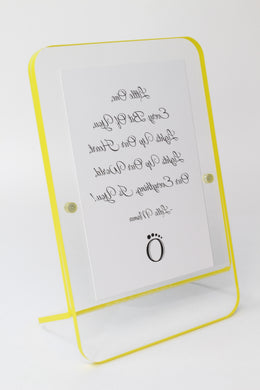 Little One,
Every Bit Of You,
Lights Up Our Heart,
Lights Up Our World,
Our Everything Is You!
-Little Mama